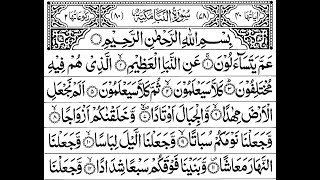 سُوْرَةُ النَّبَاِ مَكِّيَّةٌ
بِسْمِ اللّٰهِ الرَّحْمٰنِ الرَّحِيْمِ
عَمَّ يَتَسَآءَلُوْنَ ۝ عَنِ النَّبَاِ الْعَظِيْمِ ۝ الَّذِىْ هُمْ فِيْهِ
مُخْتَلِفُوْنَ ۝ كَلَّا سَيَعْلَمُوْنَ ۝ ثُمَّ كَلَّا سَيَعْلَمُوْنَ ۝ اَلَمْ نَجْعَلِ
الْاَرْضَ مِهٰدًا ۝ وَّالْجِبَالَ اَوْتَادًا ۝ وَّخَلَقْنٰكُمْ اَزْوَاجًا ۝
وَّجَعَلْنَا نَوْمَكُمْ سُبَاتًا ۝ وَّجَعَلْنَا الَّيْلَ لِبَاسًا ۝ وَّجَعَلْنَا
النَّهَارَ مَعَاشًا ۝ وَّبَنَيْنَا فَوْقَكُمْ سَبْعًا شِدَادًا ۝ وَّجَعَلْنَا